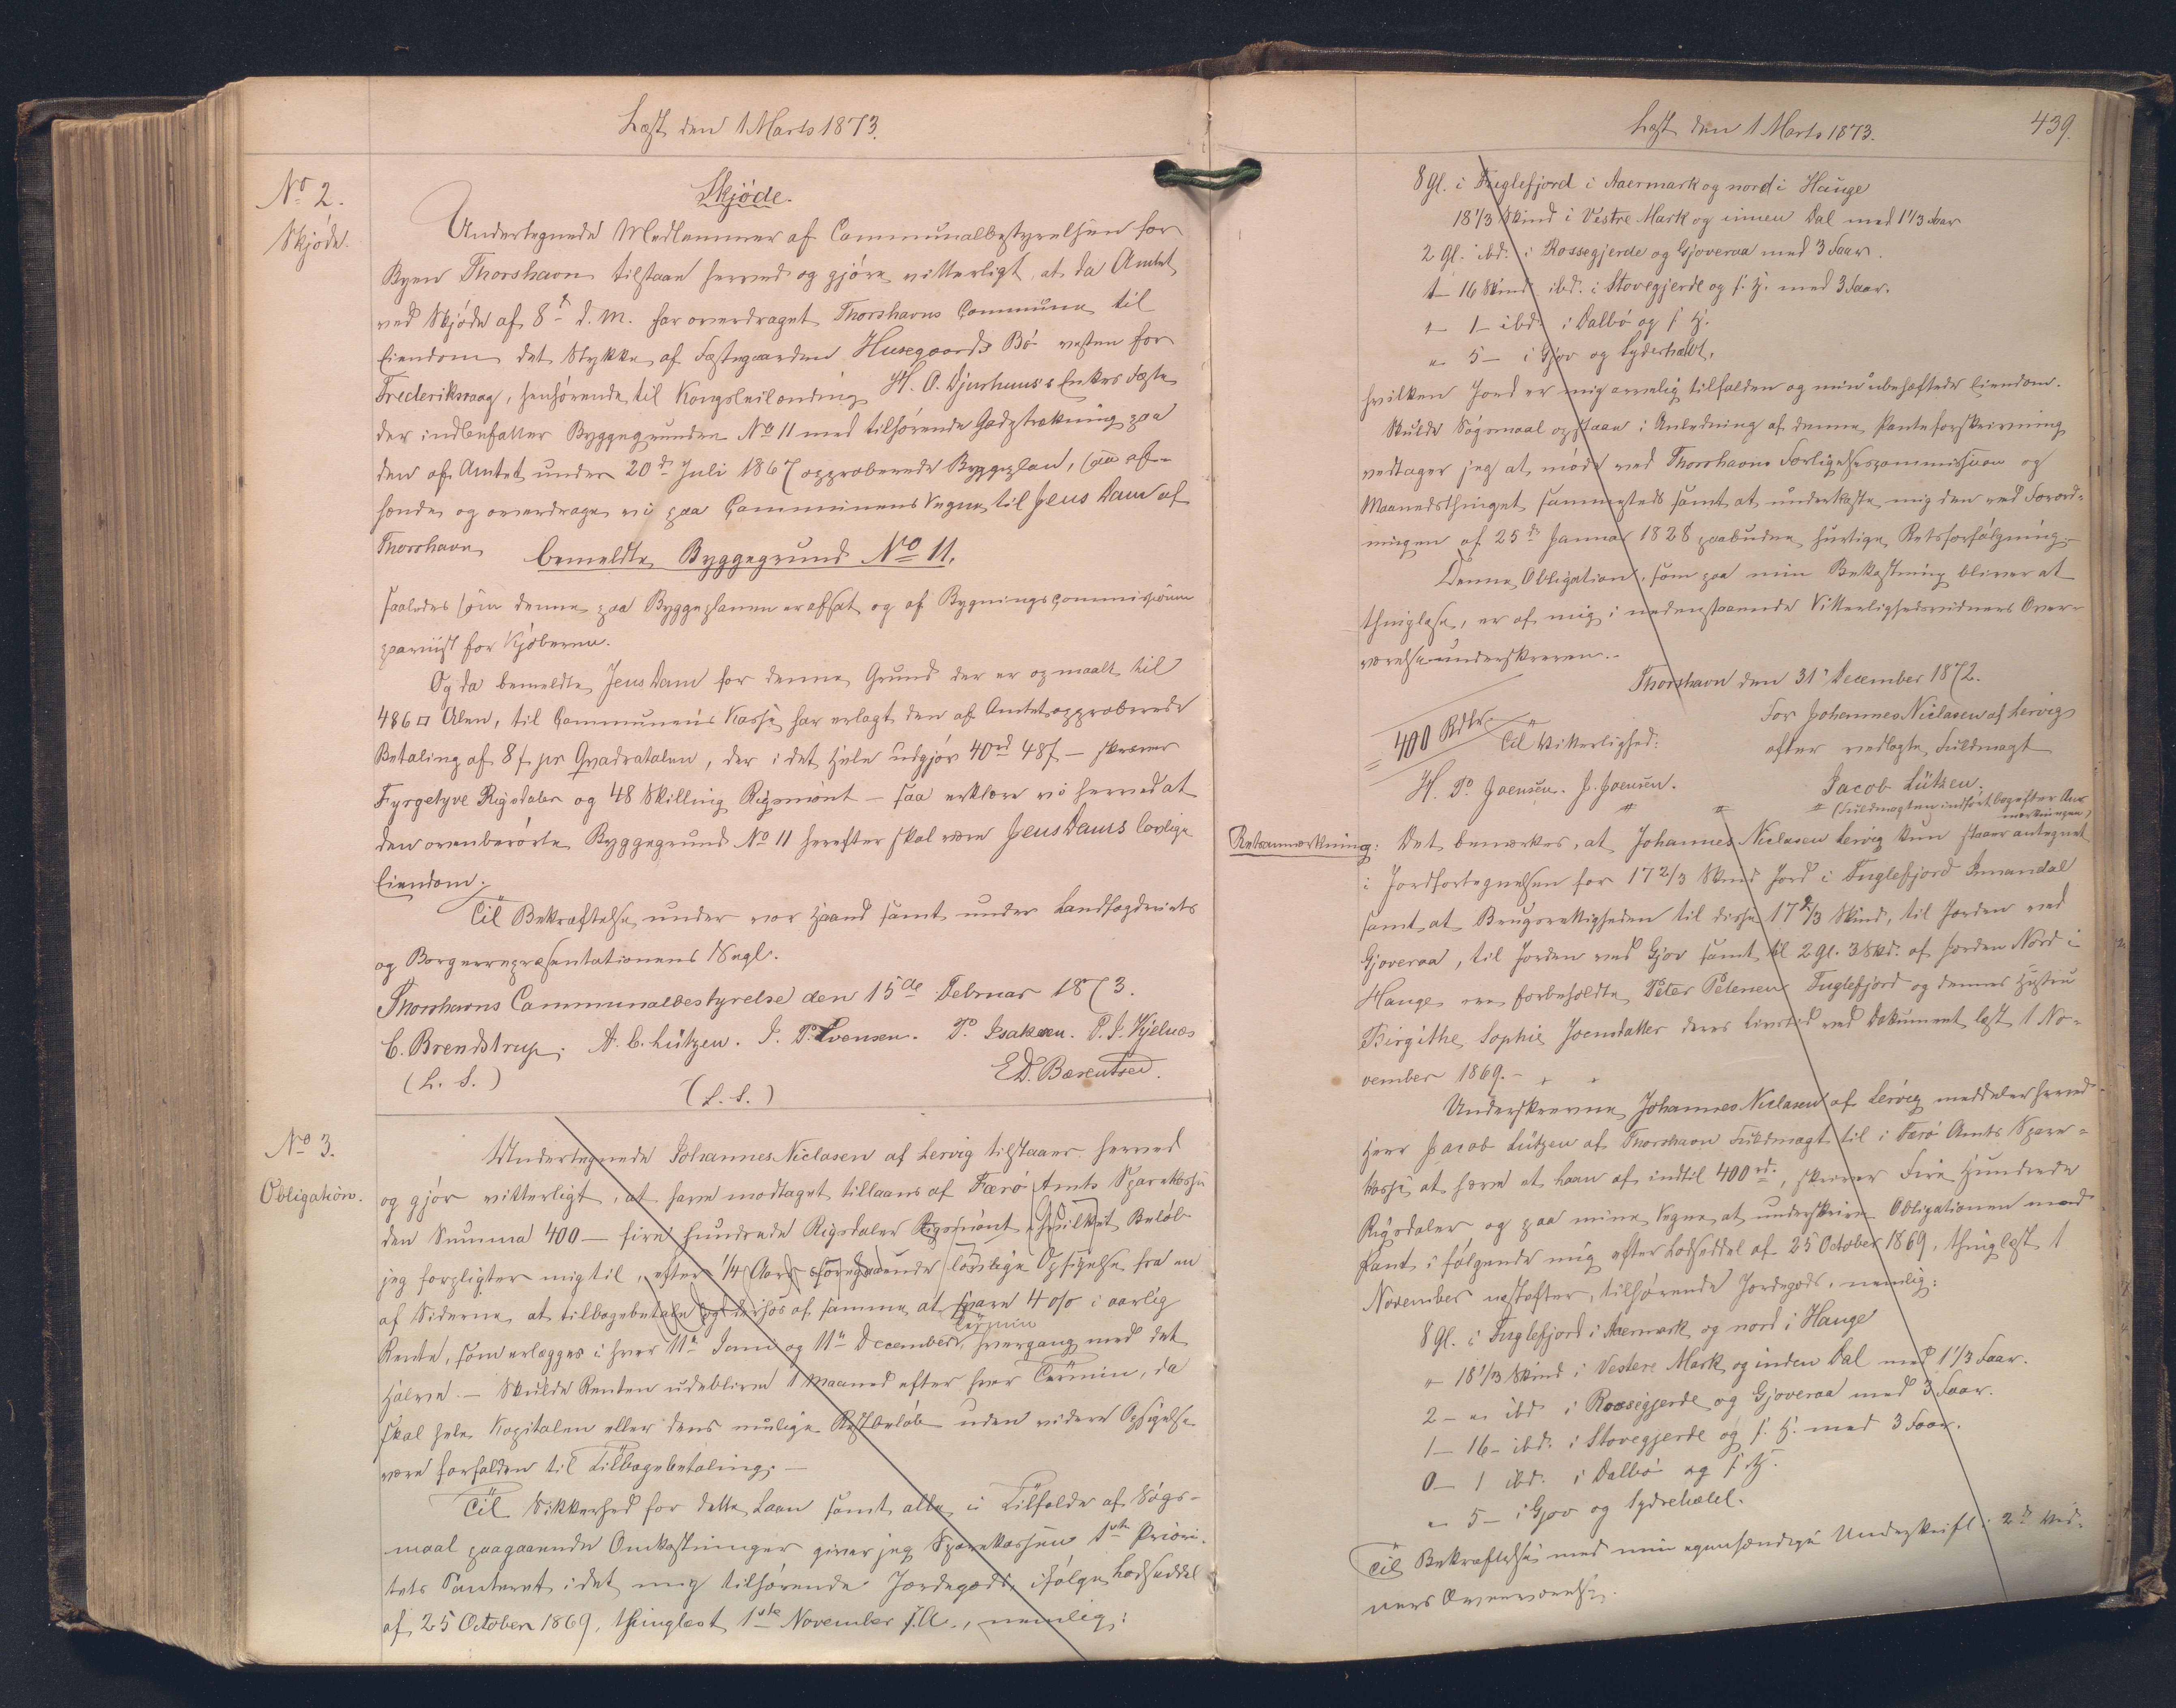 Læst den 1 Marts 1873.
No 2.
Skjøde.
Skjøde.
Undertegnede Medlemmer af Communalbestyrelsen for
Byen Thorshavn tilstaae herved og gjøre vitterligt, at da Amtet
ved Skjøde af 8de d. M. har overdraget Thorshavns Commune til
Eiendom det Stykke af Fæstegaarden Husegaards Bø vesten for
Frederiksvaag, henhørende til Kongsleilænding H. O. Djurhuus's Enkes Fæste
der indbefatter Byggegrunden No 11 med tilhørende Gadestrækning paa
den af Amtet under 20de Juli 1867 approberede Byggeplan, saa af-
hænde og overdrage vi paa Communens Vegne til Jens Dam af
Thorshavn bemeldte Byggegrund No 11.
saaledes som denne paa Byggeplanen er afsat og af Bygningscommissionen
paaviist for Kjøberen.
Og da bemeldte Jens Dam for denne Grund der er opmaalt til
486 □ Alen, til Communens Kasse har erlagt den af Amtet approberede
Betaling af 8 ß pr Qvadratalen, der i det Hele udgjør 40rd 48ß — skriver
Fyrgetyve Rigsdaler og 48 Skilling Rigsmønt — saa erklære vi herved at
den ovenberørte Byggegrund No 11 herefter skal være Jens Dams lovlige
Eiendom.
Til Bekræftelse under vor Haand samt under Landfogderiets
og Borgerrepræsentationens Segl.
Thorshavns Communalbestyrelse den 15de Februar 1873.
C. Brendstrup. A. C. Lützen. J. P. Evensen. P. Isaksen. P. J. Kjelnæs
(L. S.) (L. S.) E D. Bærentsen.
No 3.
Obligation.
Undertegnede Johannes Niclasen af Lervig tilstaaer herved
og gjør vitterligt, at have modtaget tillaans af Færø Amts Sparekasse
den Summa 400 — fire hundrede Rigsdaler Rigsmønt, hvilket Beløb
jeg forpligter mig til, efter 1/4 Aars foregaaende lovlige Opsigelse fra en
af Siderne, at tilbagebetale og derhos af samme at svare 4 o/o i aarlig
Rente, som erlægges i hver 11te Juni og 11te December Termin, hvergang med det
Halve. — Skulde Renten udeblive 1 Maaned efter hver Termin, da
skal hele Kapitalen eller dens mulige Restbeløb uden videre Opsigelse
være forfalden til Tilbagebetaling. —
Til Sikkerhed for dette Laan samt alle i Tilfælde af Søgs-
maal paagaaende Omkostninger giver jeg Sparekassen 1ste Priori-
tets Panteret i det mig tilhørende Jordegods, ifølge Lodseddel
af 25 October 1869, thinglæst 1ste November s. A., nemlig:
Læst den 1 Marts 1873.
439.
8 Gl. i Fuglefjord i Aaermark og nord i Hauge
18 1/3 Skind i Vestre Mark og innen Dal med 1 1/3 Faar
2 Gl. ibd. i Rossegjerde og Gjoveraa med 3 Faar.
1 — 16 Skind ibd. i Stovegjerde og s. H. med 3 Faar.
" — 1 — ibd. i Dalbø og s. H.
" — 5 — i Gjov og Syderhæld,
hvilken Jord er mig arvelig tilfalden og min ubehæftede Eiendom.
Skulde Søgsmaal opstaae i Anledning af denne Panteforskrivning
vedtager jeg at møde ved Thorshavns Forligelsescommission og
Maanedsthinget sammesteds samt at underkaste mig den ved Forord-
ningen af 25de Januar 1828 paabudne hurtige Retsforfølgning.
Denne Obligation, som paa min Bekostning bliver at
thinglæse, er af mig i nedenstaaende Vitterlighedsvidners Over-
værelse underskreven. —
Thorshavn den 31 December 1872.
For Johannes Niclasen af Lervig
= 400 Rdlr.
Til Vitterlighed:
efter vedlagte Fuldmagt
Jacob Lützen.
H. P. Joensen. J. Joensen.
(Fuldmagten indført bagefter Anmærkningen)
Retsanmærkning: Det bemærkes, at Johannes Niclasen Lervig kun staaer antegnet
i Jordfortegnelsen for 17 2/3 Skind Jord i Fuglefjord Innandal
samt at Brugsrettigheden til disse 17 2/3 Skind, til Jorden ved
Gjoveraa, til Jorden ved Gjov samt til 2 Gl. 3 Skd. af Jorden Nord i
Hauge ere forbeholdte Peter Petersen Fuglefjord og dennes Hustru
Birgithe Sophie Joensdatter deres Livstid ved Dokument læst 1 No-
vember 1869. —
Underskrevne Johannes Niclasen af Lervig meddeler herved
Herr Jacob Lützen af Thorshavn Fuldmagt til i Færø Amts Spare-
kasse at hæve et Laan af indtil 400 rd., skriver Fire Hundrede
Rigsdaler og paa mine Vegne at underskrive Obligationen med
Pant i følgende mig efter Lodseddel af 25 October 1869, thinglæst 1
November næstefter, tilhørende Jordegods, nemlig:
8 Gl. i Fuglefjord i Aaermark og nord i Hauge
" 18 1/3 Skind i Vestere Mark og inden Dal med 1 1/3 Faar.
2 — " ibd i Rossegjerde og Gjoveraa med 3 Faar.
1 — 16 — ibd. i Stovegjerde og s. H. med 3 Faar.
0 — 1 ibd. i Dalbø og s. H.
" — 5 — i Gjov og Sydrehæld.
Til Bekræftelse med min egenhændige Underskrift i 2de Vid-
ners Overværelse.